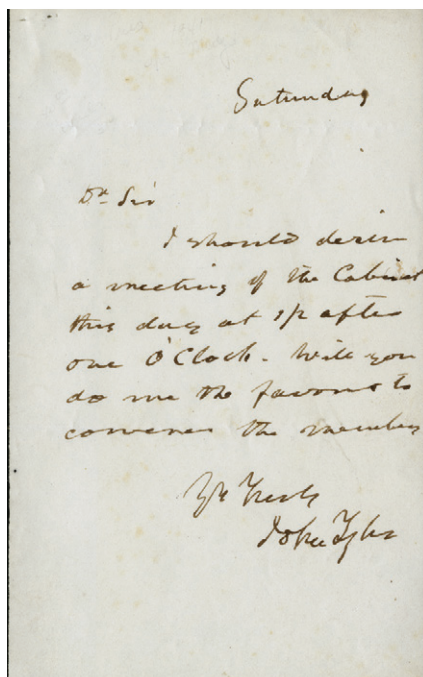 Saturday
Dr Sir
I should desire
a meeting of the Cabinet
this day at 1/2 after
one O'Clock. Will you
do me the favour to
convene the members
Yr Truly
John Tyler